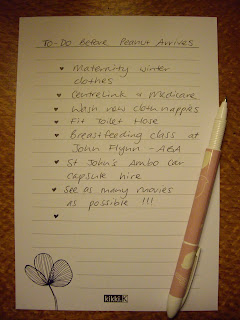 To-Do Before Peanut Arrives
♥ Maternity winter
clothes
♥ Centrelink & Medicare
♥ Wash new cloth nappies
♥ Fit Toilet Hose
♥ Breastfeeding class at
John Flynn - ABA
♥ St John's Ambo car
capsule hire
♥ See as many movies
as possible !!!
♥
kikki.K